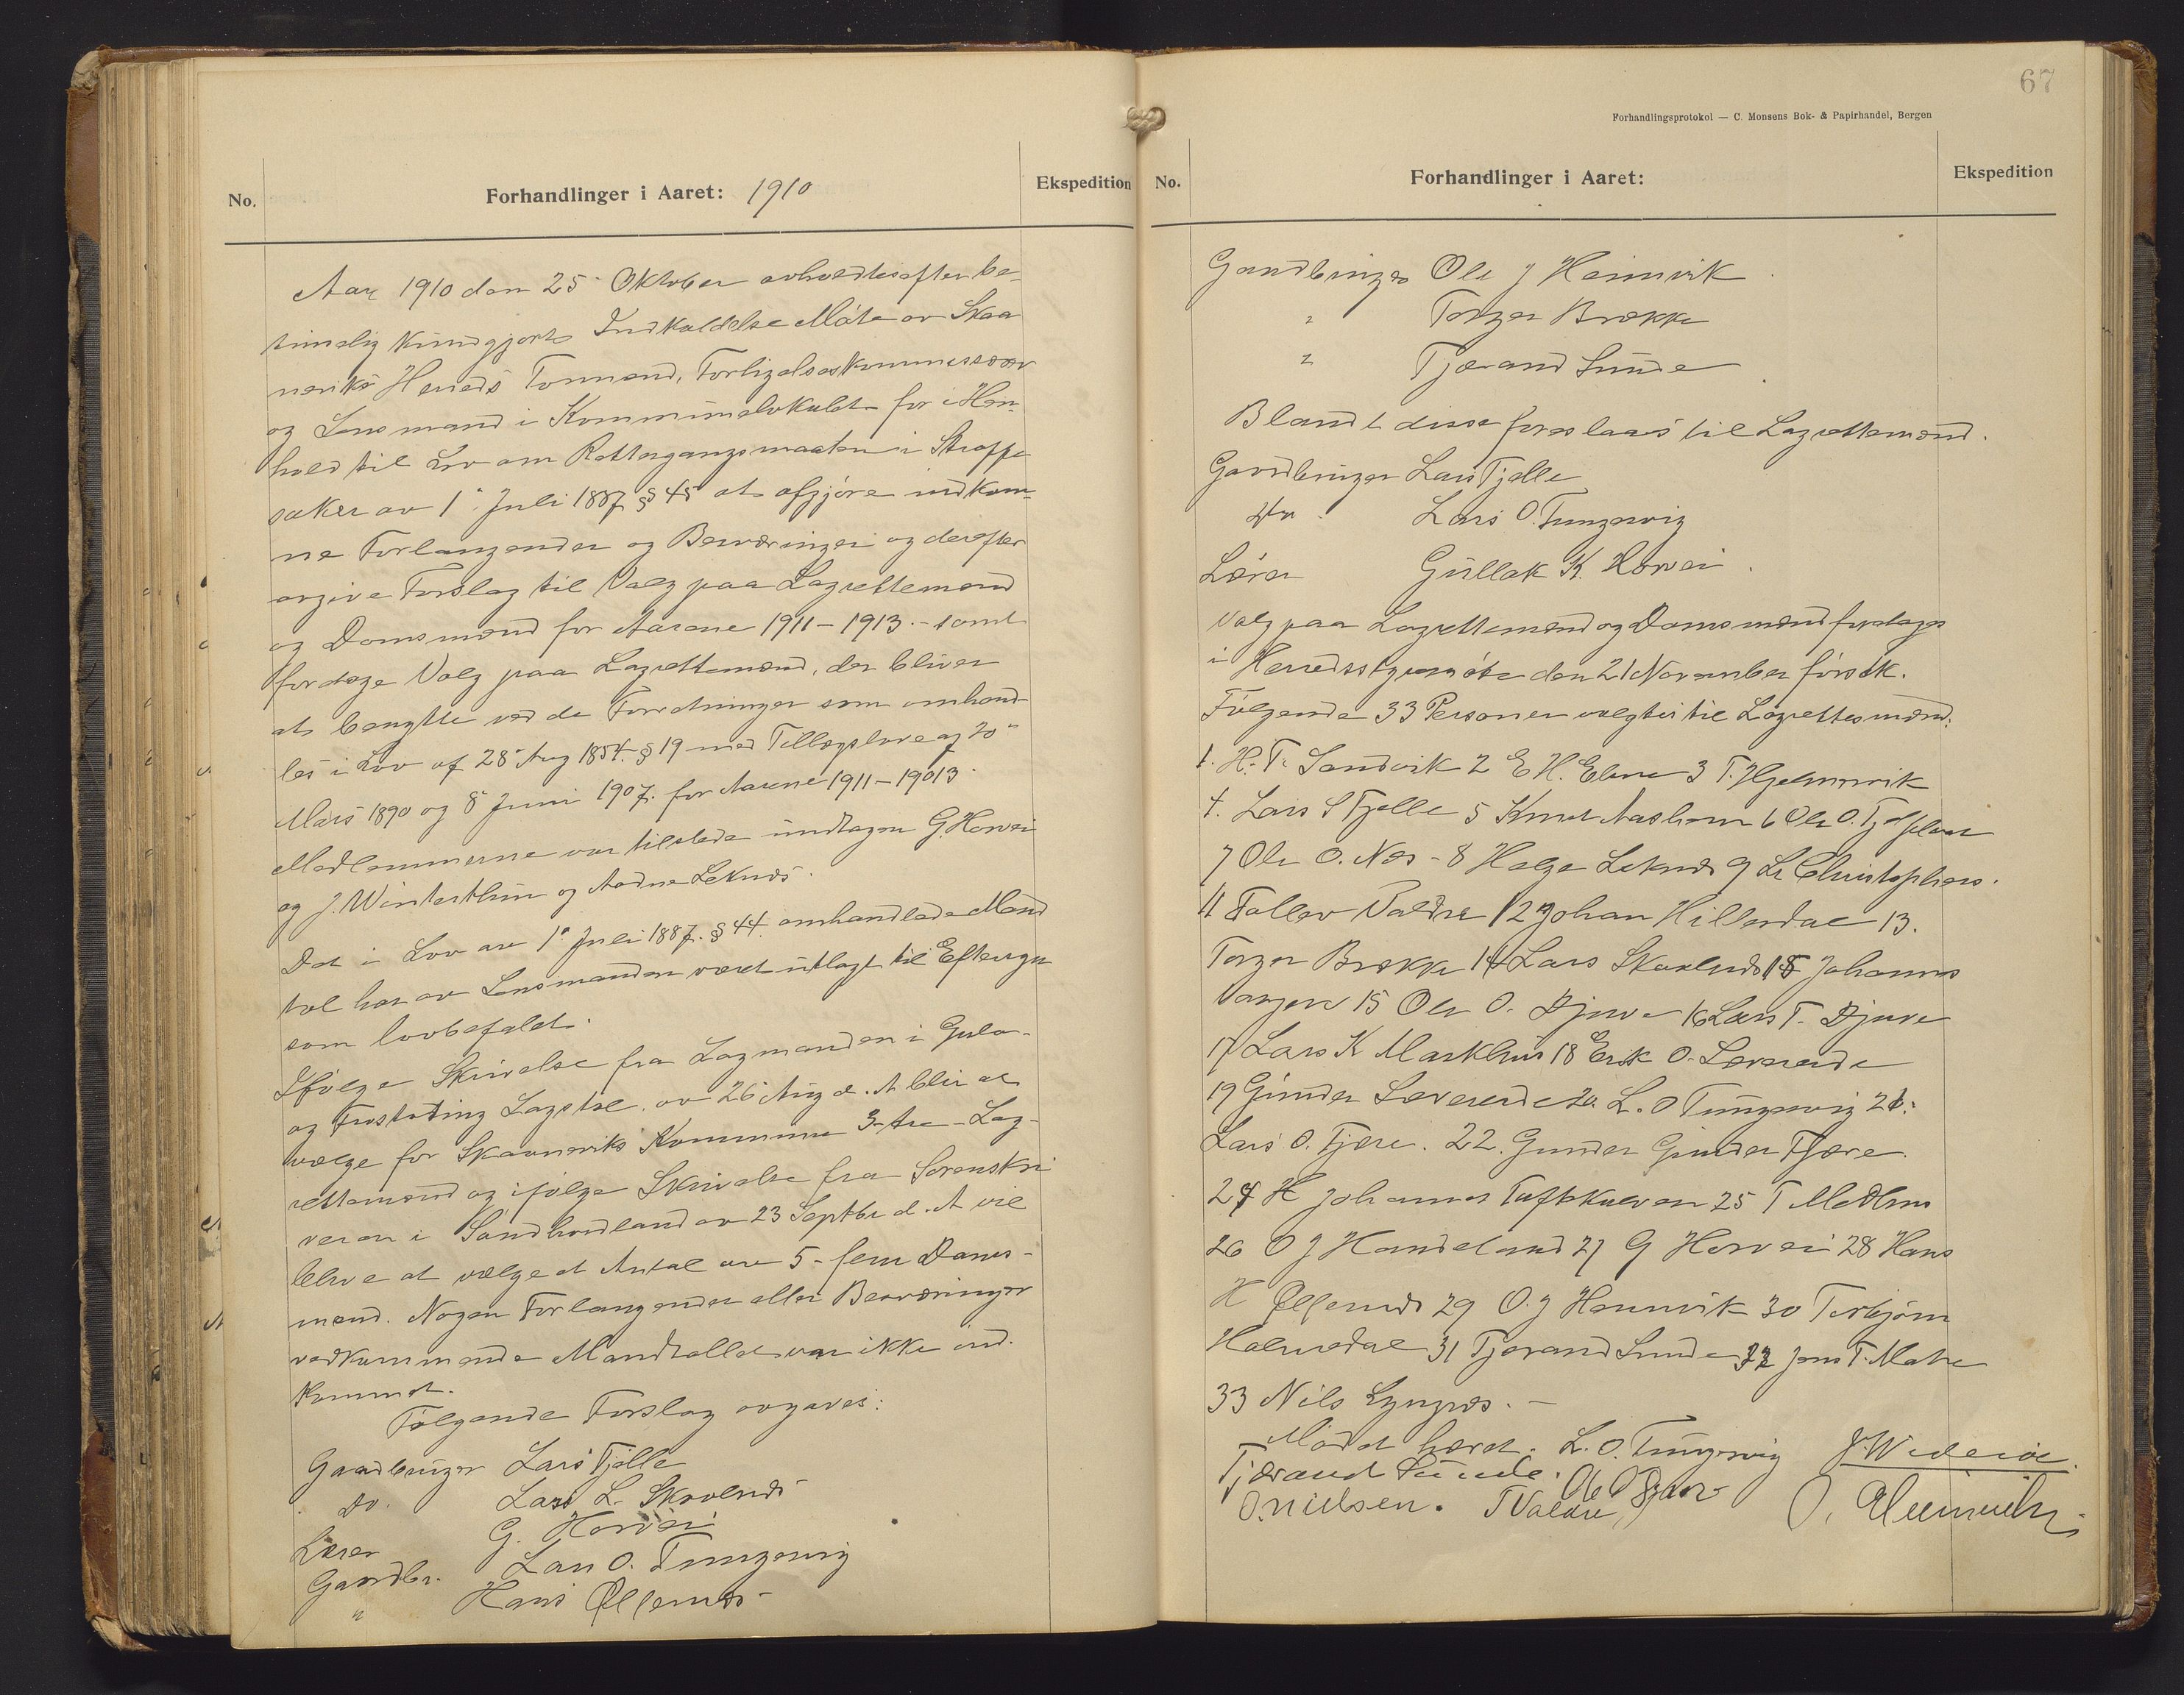 No.
Forhandlinger i Aaret: 1910
Ekspedition
Aar 1910 den 25 Oktober avholdtes efter be-
timelig kundgjort Indkaldelse Møte av Skaa
neviks Herreds Formænd, Forligelseskommissær
og Lensmand i Kommunelokalet for i Hen-
hold til Lov om Rettergangsmaaten i Straffe
saker av 1ᵉ Juli 1887 § 45 at afgjøre indkom-
ne Forlangender og Besværinger og derefter
avgive Forslag til Valg paa Lagrettemænd
og Domsmænd for Aarene 1911-1913 - samt
foretage Valg paa Lagrettemænd, der bliver
at benytte ved de Forretninger som omhand
les i Lov af 28 Aug 1854 § 19 med Tillægslove af 20
Mars 1890 og 8 Juni 1907. for Aarene 1911-19013
Medlemmerne var tilstede undtagen G. Horvei
og J. Winterthun og Aadne Leknes.
Det i Lov av 1 Juli 1887. § 44. omhandlede Mand
tal har av Lensmanden været utlagt til Eftersyn
som lovbefalet.
Ifølge Skrivelse fra Lagmanden i Gula-
og Frostating Lagstol. av 26 Aug d. A blir at
vælge for Skaaneviks Kommune 3-tre-Lag-
rettemænd og ifølge Skrivelse fra Sorenskri
veren i Søndhordland av 23 Septbr d. A vil
blive at vælge et Antal av 5- fem Doms-
mænd. Nogen Forlangender eller Besværinger
vedkommende Mandtallet var ikke ind-
kommet.
Følgende Forslag avgaves:
Gaardbruger Lars Tjelle
do. Lars L. Skaalnes
Lærer G. Horvei
Gaardbr. Lars O. Tungesvig
" Hans Ølfernes
67
Forhandlingsprotokol — C. Monsens Bok- & Papirhandel, Bergen
No.
Forhandlinger i Aaret:
Ekspedition
Gaardbruger Ole J Heimvik
" Torger Brække
" Tjærand Sunde
Blandt disse foreslaaes til Lagrettemænd.
Gaardbruger Lars Tjelle
do Lars O. Tungesvig
Lærer Gullak K. Horvei
Valg paa Lagrettemænd og Domsmænd foretages
i Herredsstyremøte den 21 November førstk.
Følgende 33 Personer valgtes til Lagrettesmænd:
1. H. T. Sandvik 2 E H. Ebne 3 T. Hjelmervik
4. Lars S Tjelle 5 Knut Aasheim 6 Ole O.
7 Ole O. Næs - 8 Helge Leknes 9 L. Christophers.
11 Tollev Valdre 12 Johan Hillesdal 13.
Torger Brække 14 Lars Skaalnes 15 Johannes
15 Ole O. Djuve 16 Lars T. Djuve
17 Lars K Markhus 18 Erik O.
19 Gunder 20. L. O Tungesvig 21.
Lars O. Fjære. 22. Gunder Gunder Fjære.
24 H Johannes Tuftekalven 25 T Medhus
26 O J Handeland 27 G Horvei 28 Hans
H Ølfernes 29 O. J Heimvik 30 Torbjørn
Holmedal 31 Tjerand Sunde 32 Jens T. Matre
33 Nils Lyngnes. —
Mødet hævet. L. O. Tungesvig
Tjærand Sunde.
O. Nielsen. T Valdre O. Heimvik